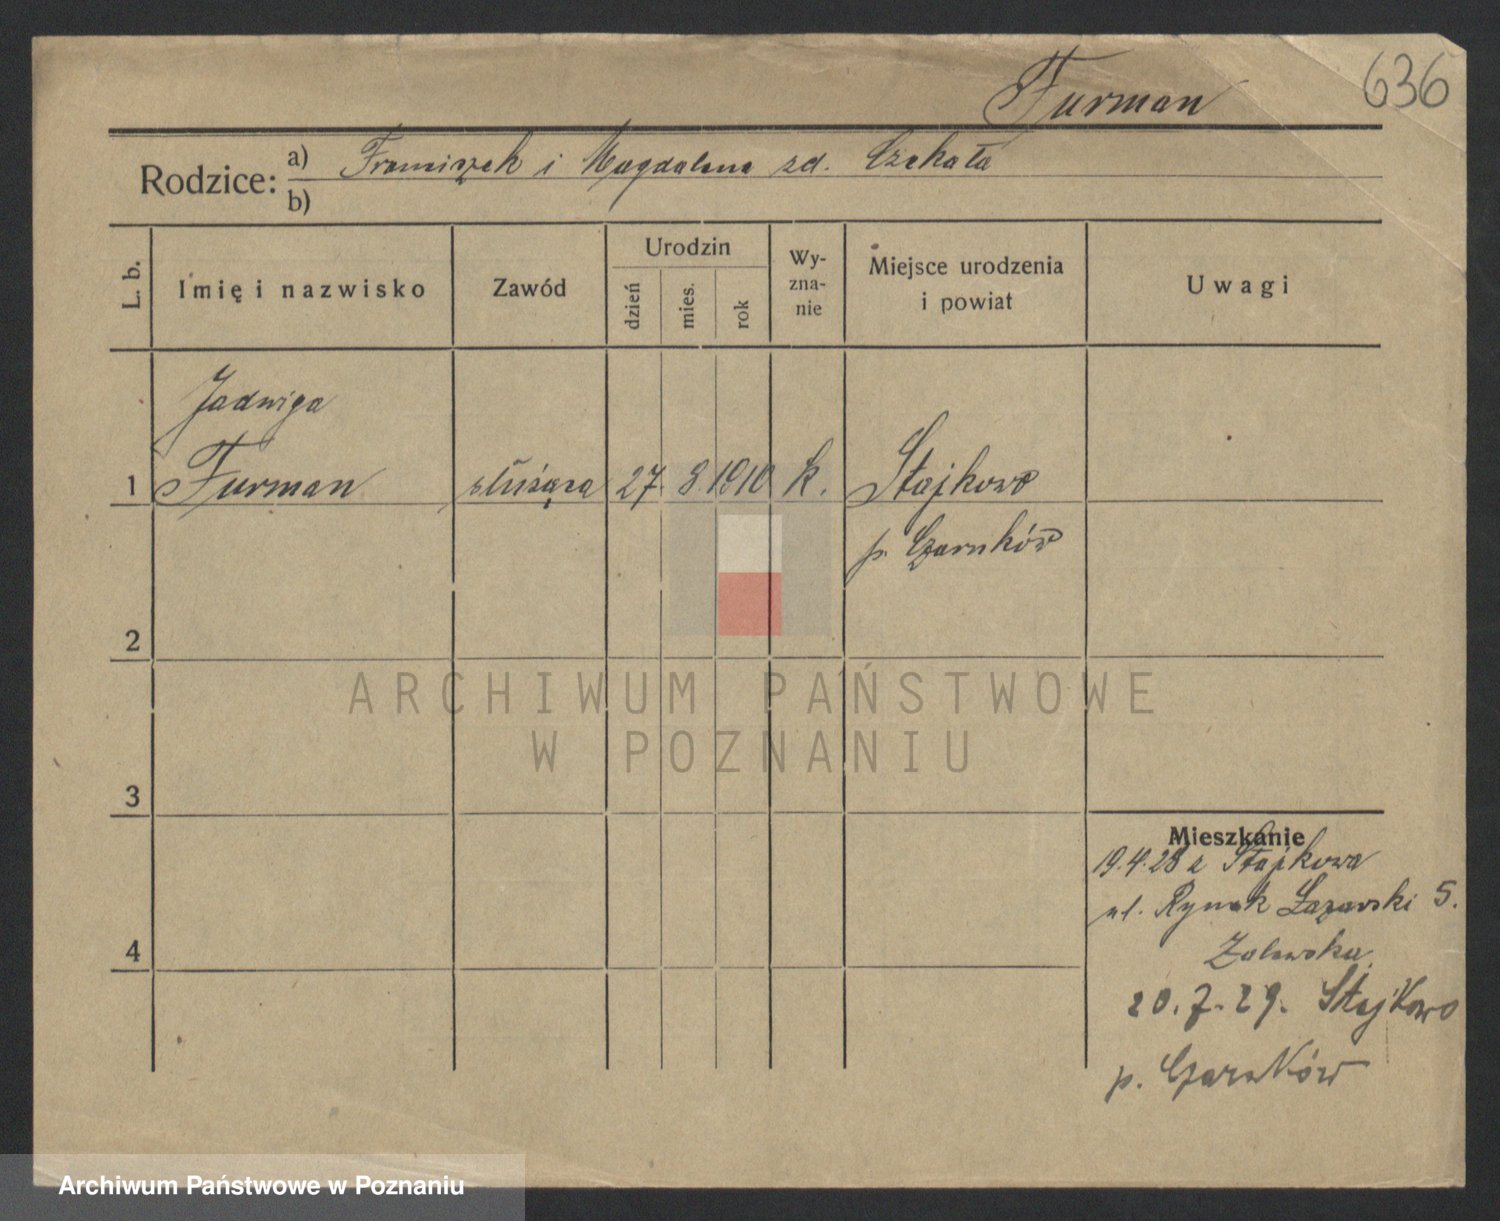 636
Furman
Rodzice: a) Franciszek i Magdalena zd. Czekała
b)
L. b.
Imię i nazwisko
Zawód
Urodzin
dzień
mies.
rok
Wy-
zna-
nie
Miejsce urodzenia
i powiat
Uwagi
Jadwiga
1 Furman służąca 27. 8. 1910 k. Stajkowo
p. Czarnków
2
ARCHIWUM PAŃSTWOWE
W POZNANIU
3
Mieszkanie
19.4.28 z Stajkowa
ul. Rynek Łazarski 5.
Zalewska
4
20.7.29. Stajkowo
p. Czarnków
Archiwum Państwowe w Poznaniu